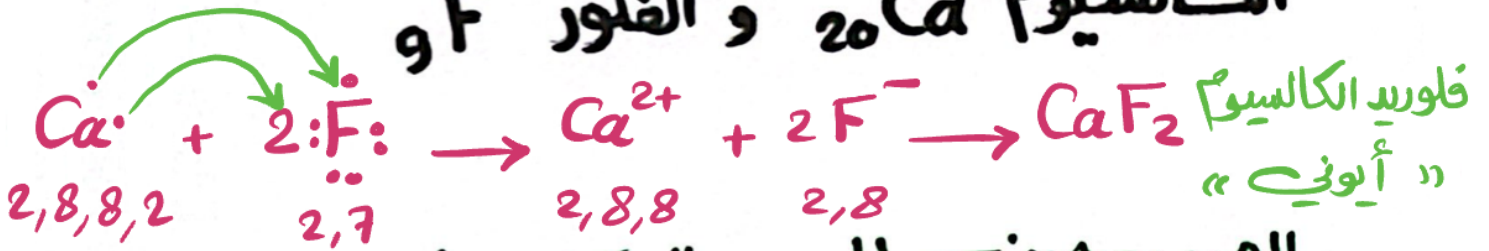 الكالسيوم ₂₀Ca و الفلور ₉F و
Ca + 2 F → Ca²⁺ + 2 F⁻ → CaF₂ فلوريد الكالسيوم
2,8,8,2 2,7 2,8,8 2,8 « أيوني »